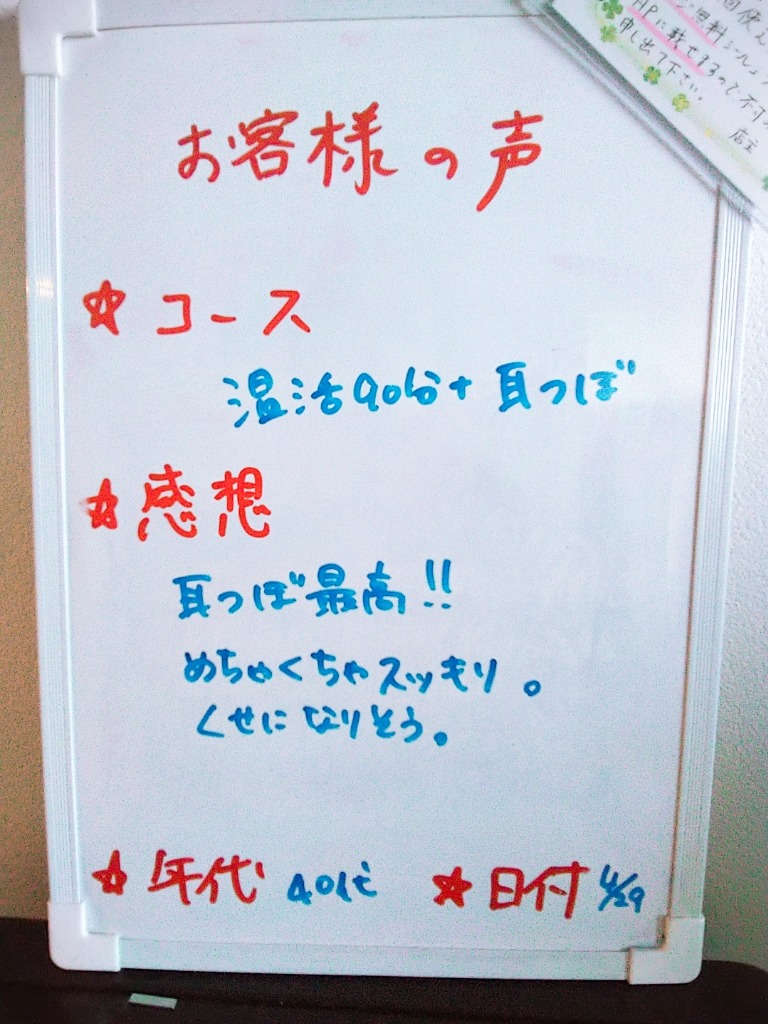 お客様の声
☆ コース
温活90分+耳つぼ
☆ 感想
耳つぼ最高!!
めちゃくちゃスッキリ。
くせになりそう。
☆ 年代 40代 ★ 日付 4/29
HPに載せるので不可
申し出て下さい。
店主